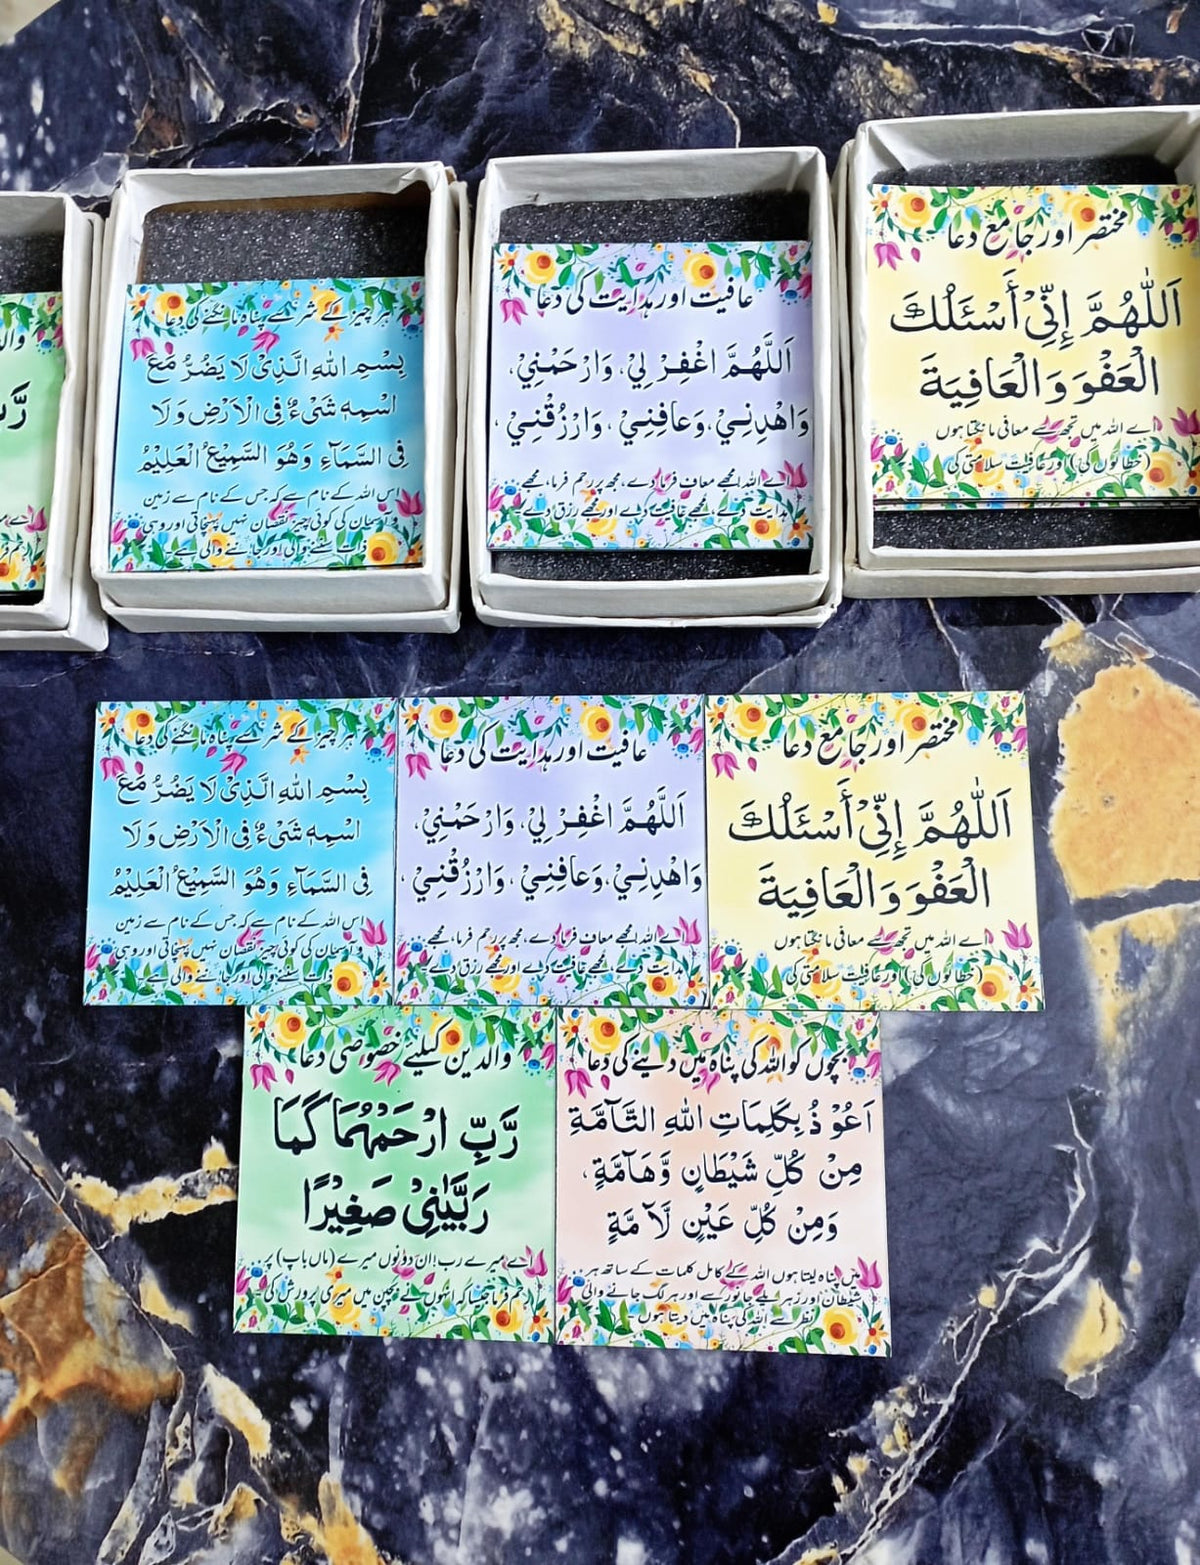 وال
رَّبِّ
ہر چیز کے شر سے پناہ مانگنے کی دعا
بِسْمِ اللهِ الَّذِىْ لَا يَضُرُّ مَعَ
اسْمِهٖ شَىْءٌ فِى الْاَرْضِ وَلَا
فِى السَّمَآءِ وَهُوَ السَّمِيْعُ الْعَلِيْمُ
اس اللہ کے نام سے کہ جس کے نام سے زمین
و آسمان کی کوئی چیز نقصان نہیں پہنچاتی اور وہی
ذات سننے والی اور جاننے والی ہے
عافیت اور ہدایت کی دعا
اَللّٰهُمَّ اغْفِرْ لِيْ، وَارْحَمْنِيْ،
وَاهْدِنِيْ، وَعَافِنِيْ، وَارْزُقْنِيْ،
اے اللہ! مجھے معاف فرما دے، مجھ پر رحم فرما، مجھے
ہدایت دے، مجھے عافیت دے اور مجھے رزق دے
مختصر اور جامع دعا
اَللّٰهُمَّ إِنِّىْ أَسْئَلُكَ
الْعَفْوَ وَ الْعَافِيَةَ
اے اللہ میں تجھ سے معافی مانگتا ہوں
(خطاؤں کی) اور عافیت سلامتی کی
ہر چیز کے شر سے پناہ مانگنے کی دعا
بِسْمِ اللهِ الَّذِىْ لَا يَضُرُّ مَعَ
اسْمِهٖ شَىْءٌ فِى الْاَرْضِ وَلَا
فِى السَّمَآءِ وَهُوَ السَّمِيْعُ الْعَلِيْمُ
اس اللہ کے نام سے کہ جس کے نام سے زمین
و آسمان کی کوئی چیز نقصان نہیں پہنچاتی اور وہی
ذات سننے والی اور جاننے والی ہے
عافیت اور ہدایت کی دعا
اَللّٰهُمَّ اغْفِرْ لِيْ، وَارْحَمْنِيْ،
وَاهْدِنِيْ، وَعَافِنِيْ، وَارْزُقْنِيْ،
اے اللہ! مجھے معاف فرما دے، مجھ پر رحم فرما، مجھے
ہدایت دے، مجھے عافیت دے اور مجھے رزق دے
مختصر اور جامع دعا
اَللّٰهُمَّ إِنِّىْ أَسْئَلُكَ
الْعَفْوَ وَ الْعَافِيَةَ
اے اللہ میں تجھ سے معافی مانگتا ہوں
(خطاؤں کی) اور عافیت سلامتی کی
والدین کیلئے خصوصی دعا
رَّبِّ ارْحَمْهُمَا كَمَا
رَبَّيٰنِىْ صَغِيْرًا
اے میرے رب! ان دونوں میرے (ماں باپ) پر
رحم فرما جیسا کہ انہوں نے بچپن میں میری پرورش کی
بچوں کو اللہ کی پناہ میں دینے کی دعا
اَعُوْذُ بِكَلِمَاتِ اللهِ التَّآمَّةِ
مِنْ كُلِّ شَيْطَانٍ وَّهَآمَّةٍ،
وَمِنْ كُلِّ عَيْنٍ لَّآمَّةٍ
میں پناہ لیتا ہوں اللہ کے کامل کلمات کے ساتھ ہر
شیطان اور زہریلے جانور سے اور ہر لگ جانے والی
نظر سے اللہ کی پناہ میں دیتا ہوں